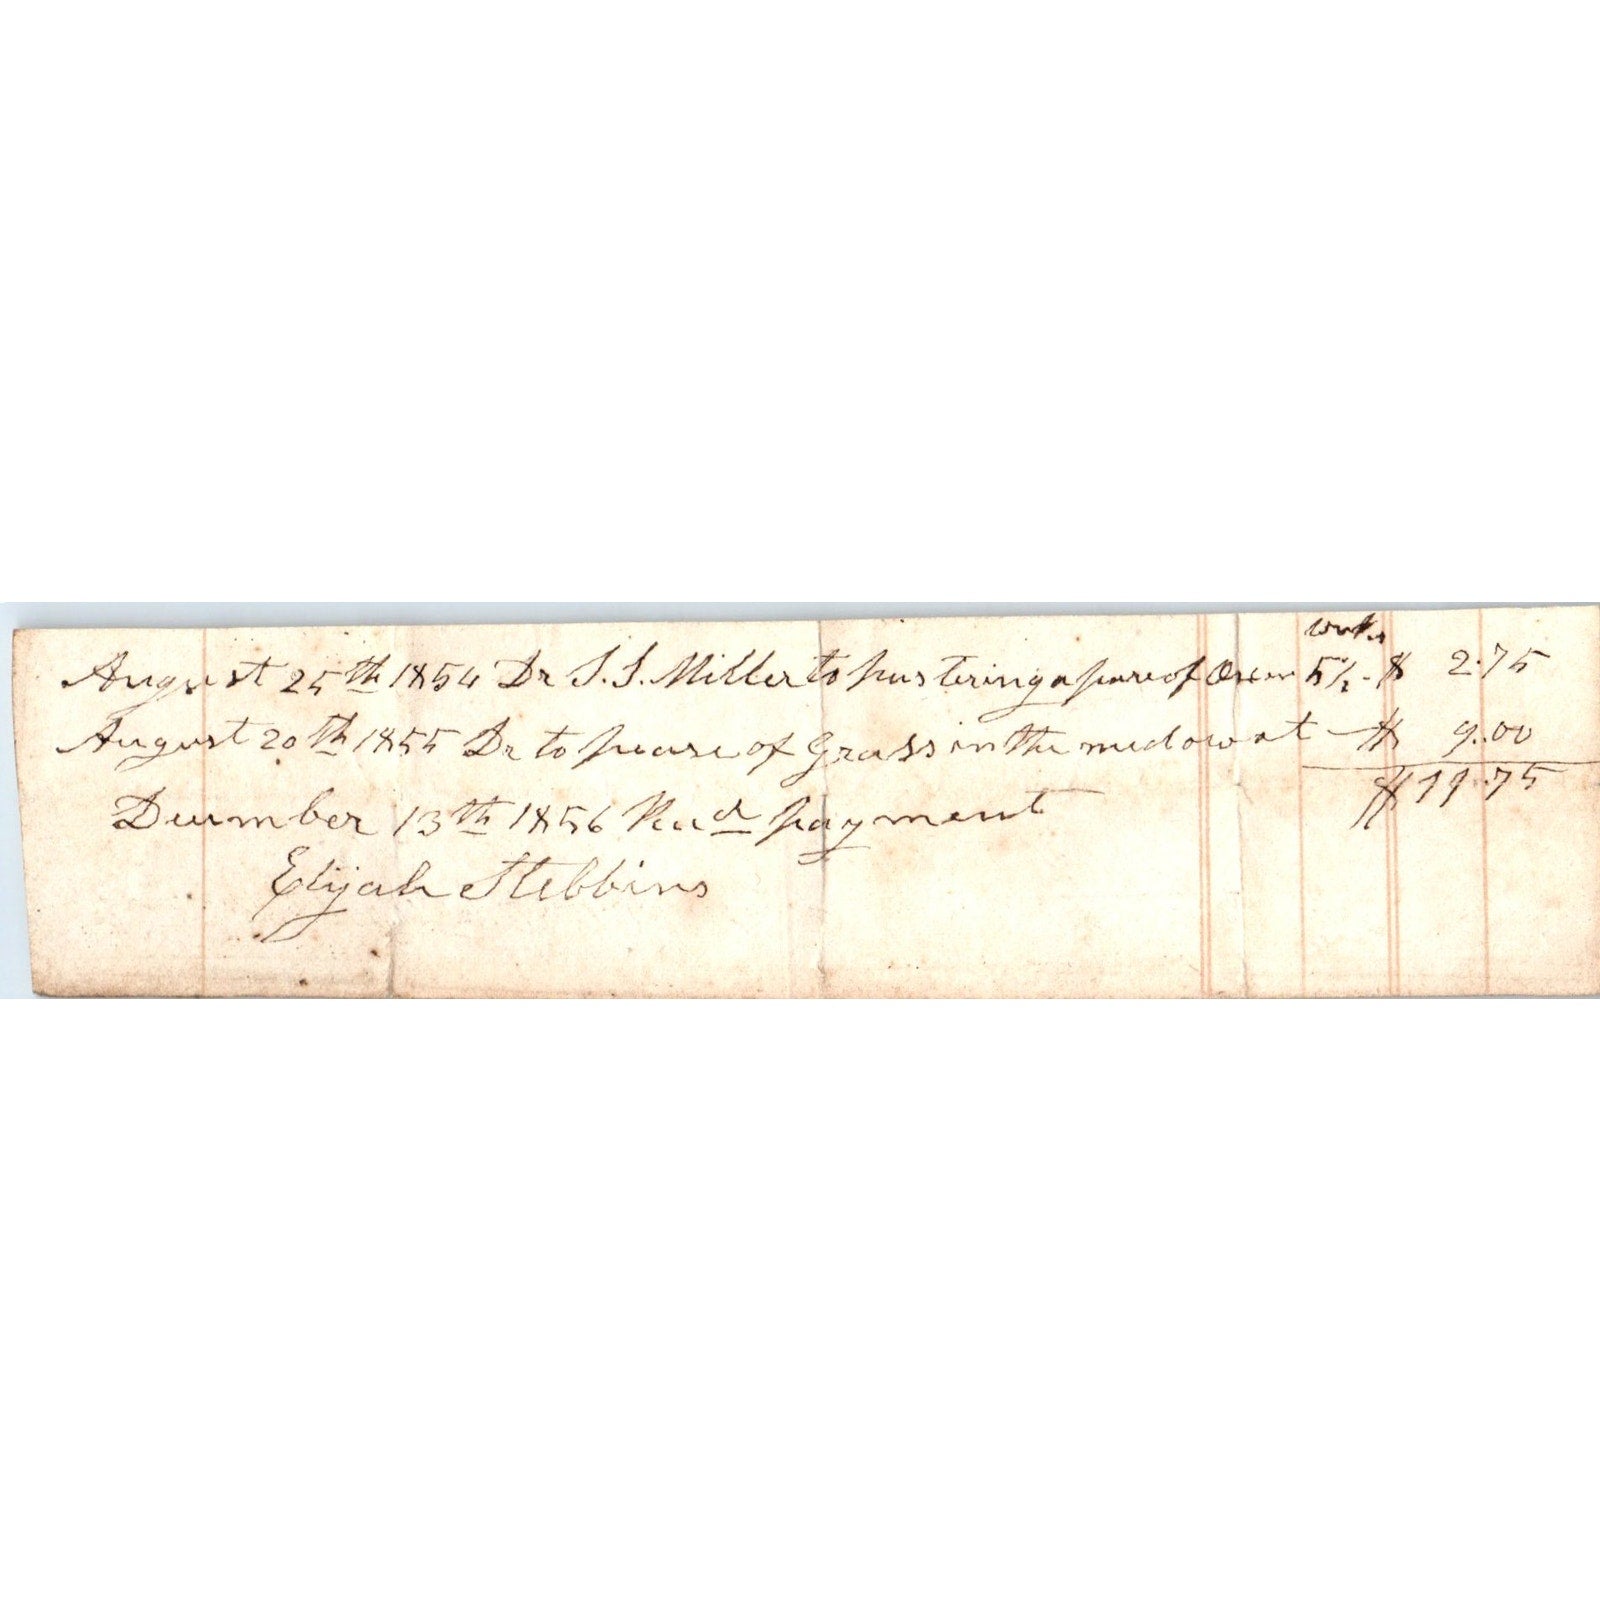 weeks
August 25th 1854 Dr S. S. Miller to pastering a pare of Oxen 5 1/2 - $ 2.75
August 20th 1855 Dr to pease of Grass in the medow at - $ 9.00
$ 11.75
December 13th 1856 Recd payment
Elijah Stebbins